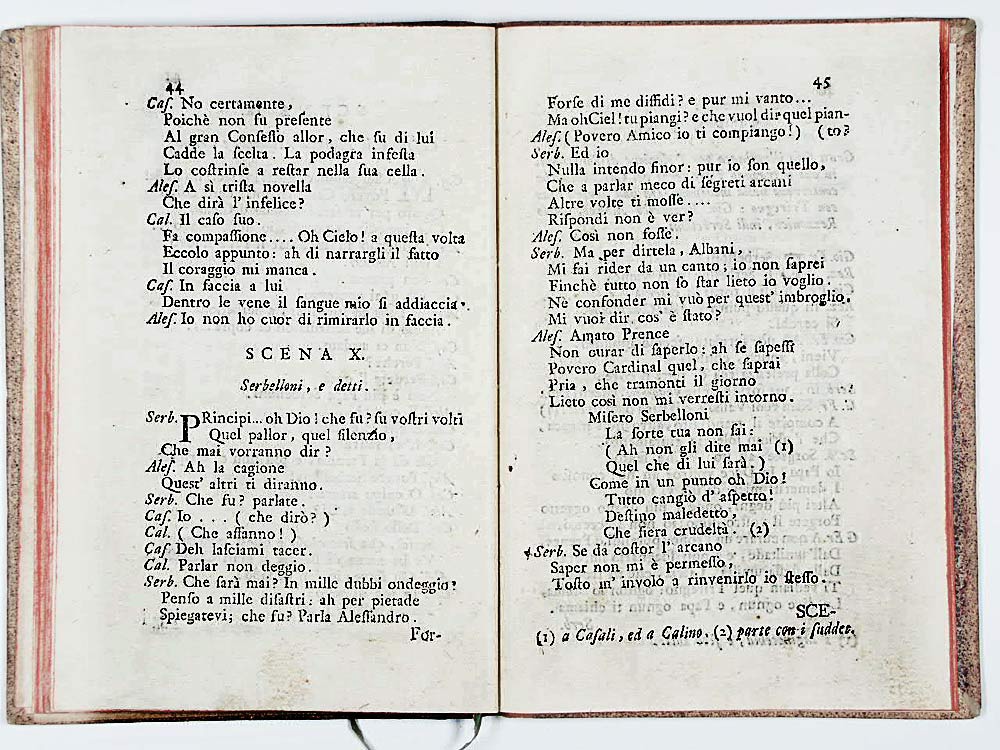 44
Caſ. No certamente,
Poichè non fu preſente
Al gran Conſeſſo allor, che fu di lui
Cadde la ſcelta. La podagra infeſta
Lo coſtrinſe a reſtar nella ſua cella.
Aleſ. A sì triſta novella
Che dirà l' infelice?
Cal. Il caſo ſuo.
Fa compaſſione.... Oh Cielo! a queſta volta
Eccolo appunto: ah di narrargli il fatto
Il coraggio mi manca.
Caſ. In faccia a lui
Dentro le vene il ſangue mio ſi addiaccia.
Aleſ. Io non ho cuor di rimirarlo in faccia.
SCENA X.
Serbelloni, e detti.
Serb. PRincipi... oh Dio! che fu? ſu voſtri volti
Quel pallor, quel ſilenzio,
Che mai vorranno dir?
Aleſ. Ah la cagione
Queſt' altri ti diranno.
Serb. Che fu? parlate.
Caſ. Io . . . ( che dirò? )
Cal. ( Che affanno! )
Caſ. Deh laſciami tacer.
Cal. Parlar non deggio.
Serb. Che ſarà mai? In mille dubbi ondeggio:
Penſo a mille diſaſtri: ah per pietade
Spiegatevi; che fu? Parla Aleſſandro.
For-
45
Forſe di me diffidi? e pur mi vanto...
Ma oh Ciel! tu piangi? e che vuol dir quel pian-
Aleſ. ( Povero Amico io ti compiango! ) (to?
Serb. Ed io
Nulla intendo finor: pur io ſon quello,
Che a parlar meco di ſegreti arcani
Altre volte ti moſſe....
Riſpondi non è ver?
Aleſ. Così non foſſe.
Serb. Ma per dirtela, Albani,
Mi fai rider da un canto; io non ſaprei
Finchè tutto non ſo ſtar lieto io voglio.
Ne confonder mi vuò per queſt' imbroglio.
Mi vuoi dir cos' è ſtato?
Aleſ. Amato Prence
Non curar di ſaperlo: ah ſe ſapeſſi
Povero Cardinal quel, che ſaprai
Pria, che tramonti il giorno
Lieto così non mi verreſti intorno.
Miſero Serbelloni
La ſorte tua non ſai:
( Ah non gli dite mai (1)
Quel che di lui ſarà. )
Come in un punto oh Dio!
Tutto cangiò d' aſpetto!
Deſtino maledetto,
Che fiera crudeltà (2)
Serb. Se da coſtor l' arcano
Saper non mi è permeſſo,
Toſto m' involo a rinvenirlo io ſteſſo.
SCE-
(1) a Caſali, ed a Calino. (2) parte con i ſuddet.